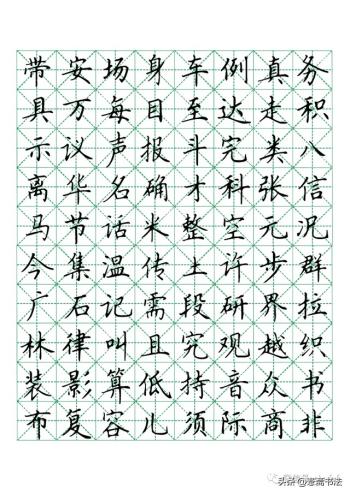 带安场身车例真务
具万每目至达走积
示议声报斗完类八
离华名确才科张信
马节话米整空元况
今集温传土许步群
广石记需段研界拉
林律叫且究观越织
装影算低持音众书
布复容儿须际商非